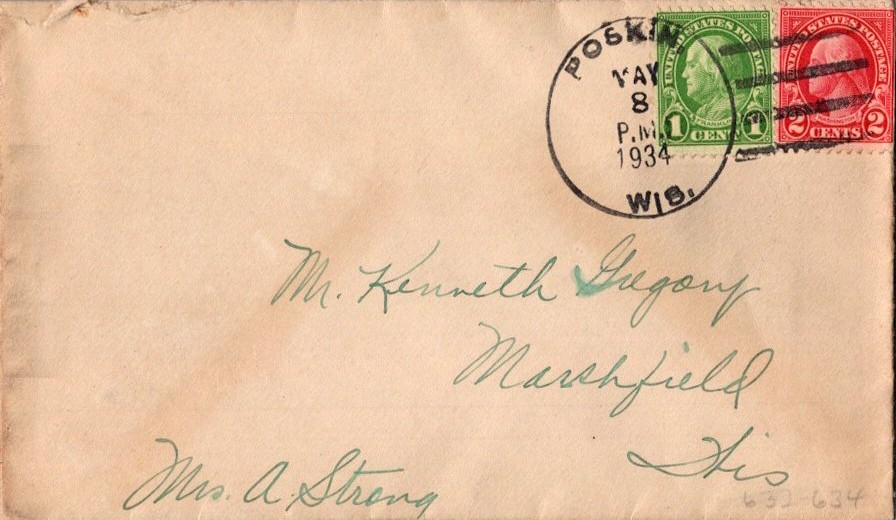 POSKIN
MAY
8
P.M.
1934
WIS.
UNITED STATES POSTAGE
FRANKLIN
1 CENT 1
UNITED STATES POSTAGE
2 CENTS 2
Mr. Kenneth Gregory
Marshfield
Wis
Mrs. A. Strong
632-634